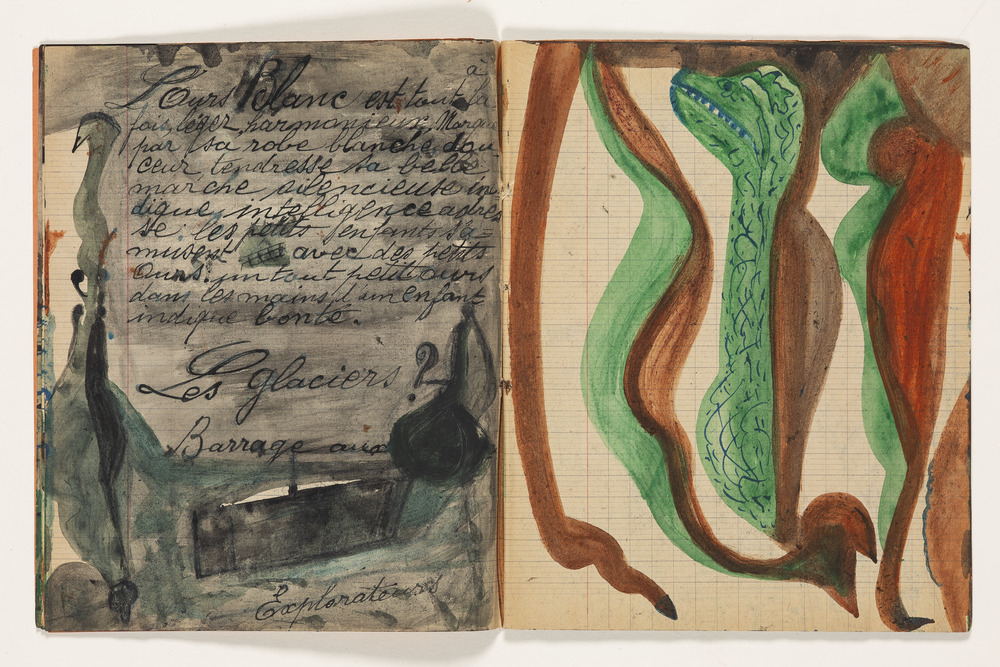 L'Ours Blanc est tout à la
fois léger, harmonieux, Marqué
par sa robe blanche, dou-
ceur tendresse sa belle
marche silencieuse in
dique, intelligence adres
se: les petits enfants s'a=
musent avec des petits
Ours: un tout petit ours
dans les mains d'un enfant
indique bonté.
Les glaciers?
Barrage aux
Explorateurs